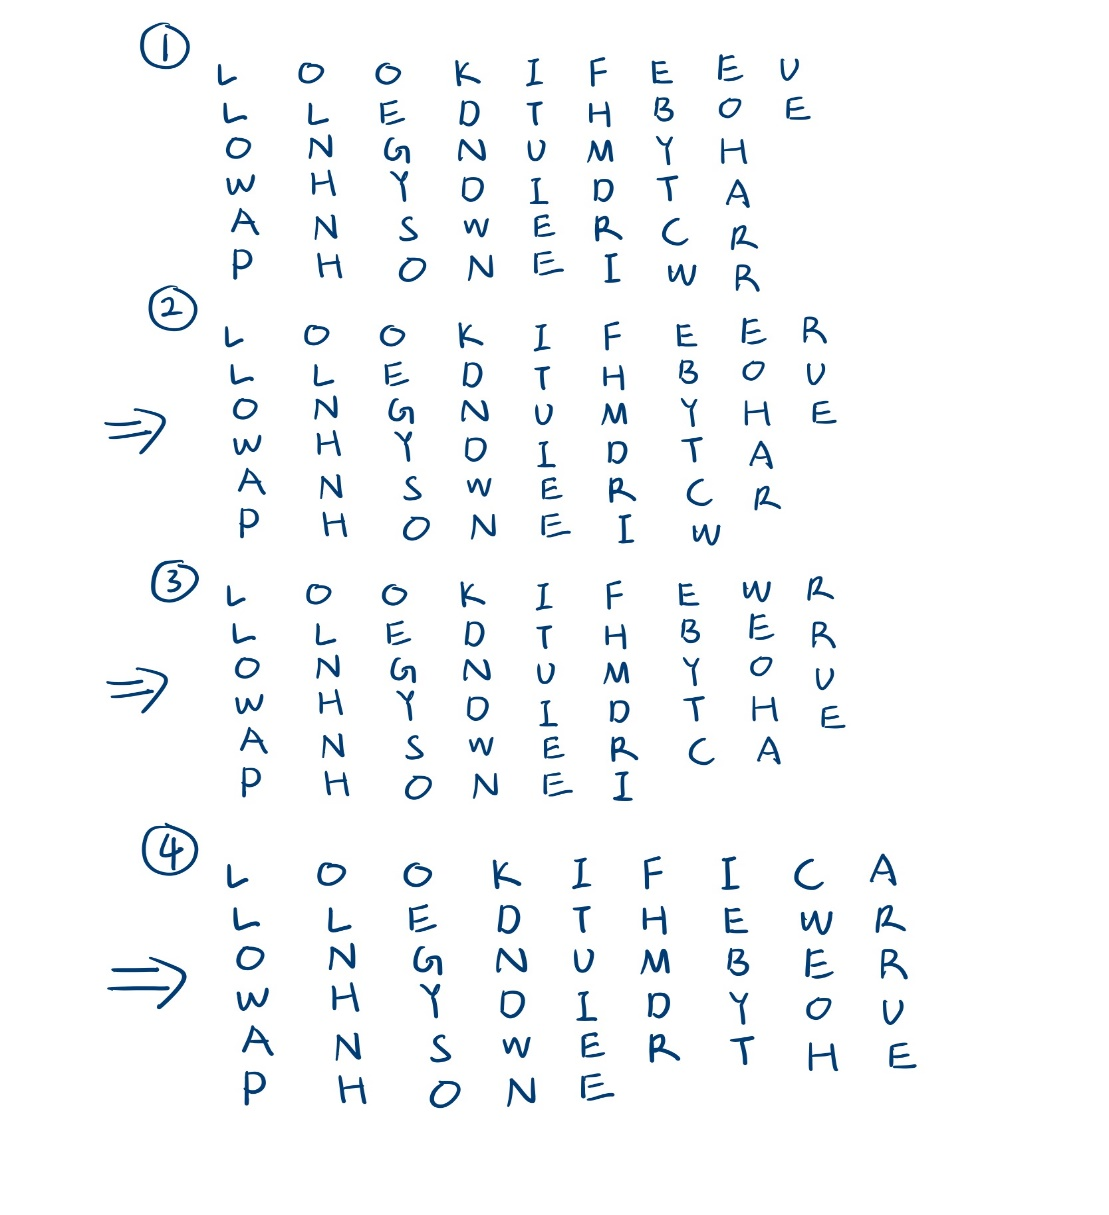 ①
L O O K I F E E U
L L E D T H B O E
O N G N U M Y H
W H Y O I D T A
A N S W E R C R
P H O N E I W R
②
L O O K I F E E R
L L E D T H B O U
⇒ O N G N U M Y H E
W H Y O I D T A
A N S W E R C R
P H O N E I W
③
L O O K I F E W R
L L E D T H B E R
⇒ O N G N U M Y O U
W H Y O I D T H E
A N S W E R C A
P H O N E I
④
L O O K I F I C A
L L E D T H E W R
⇒ O N G N U M B E R
W H Y O I D Y O U
A N S W E R T H E
P H O N E